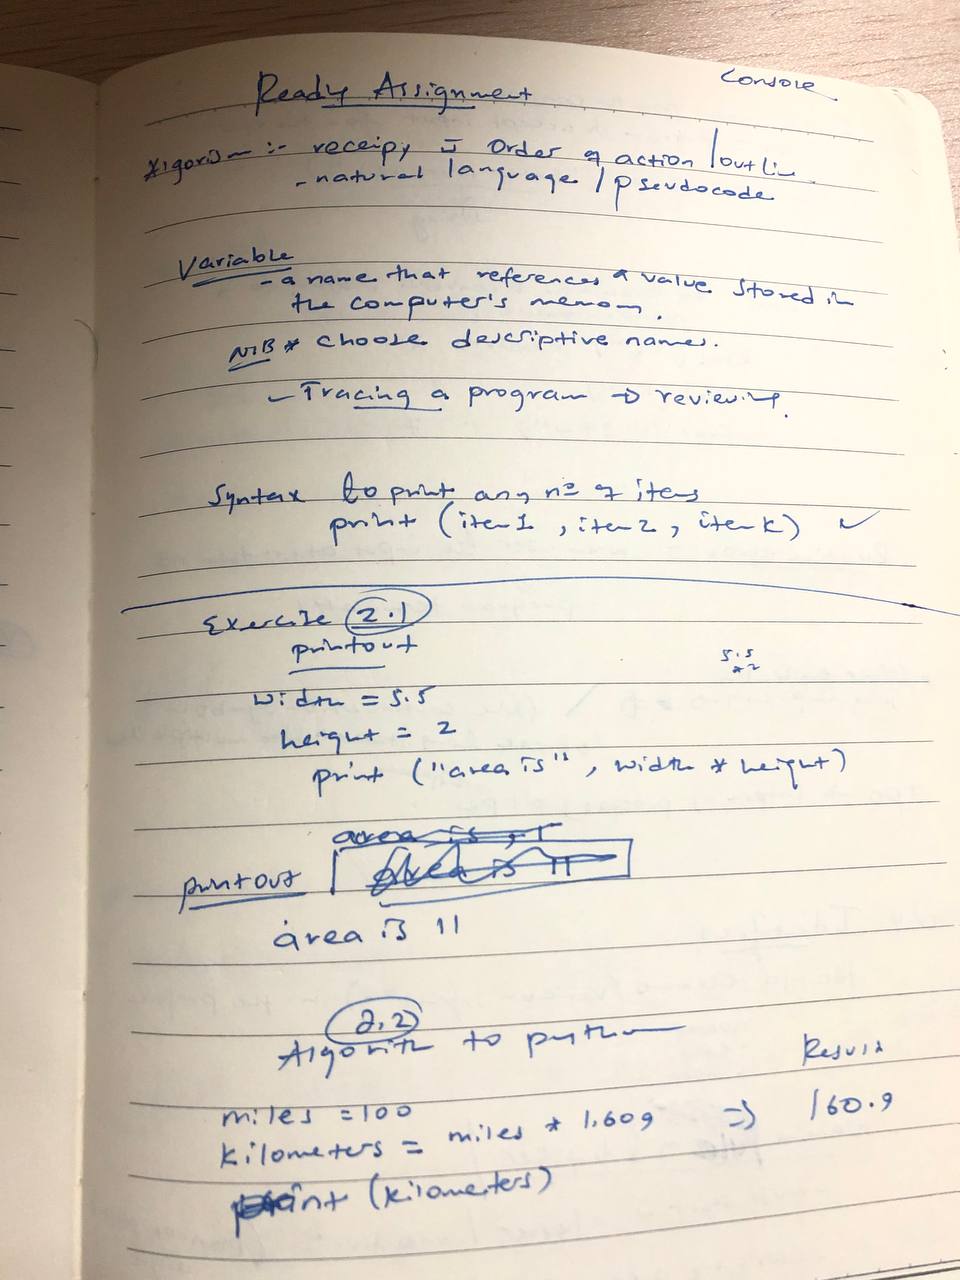 Console
Ready Assignment
Algorism :- receipy = Order of action / outli
- natural language / pseudocode
Variable
- a name that references a value stored in
the computer's memory.
NB * choose descriptive names.
- Tracing a program → reviewing.
Syntax to print any nº of items
print (item 1, item 2, item k) ✓
Exercise 2.1
printout
5.5
*2
width = 5.5
height = 2
print ("area is", width * height)
area is
printout area is 11
area is 11
2.2
Algorith to python
Result
miles = 100
kilometers = miles * 1.609 => 160.9
print (kilometers)